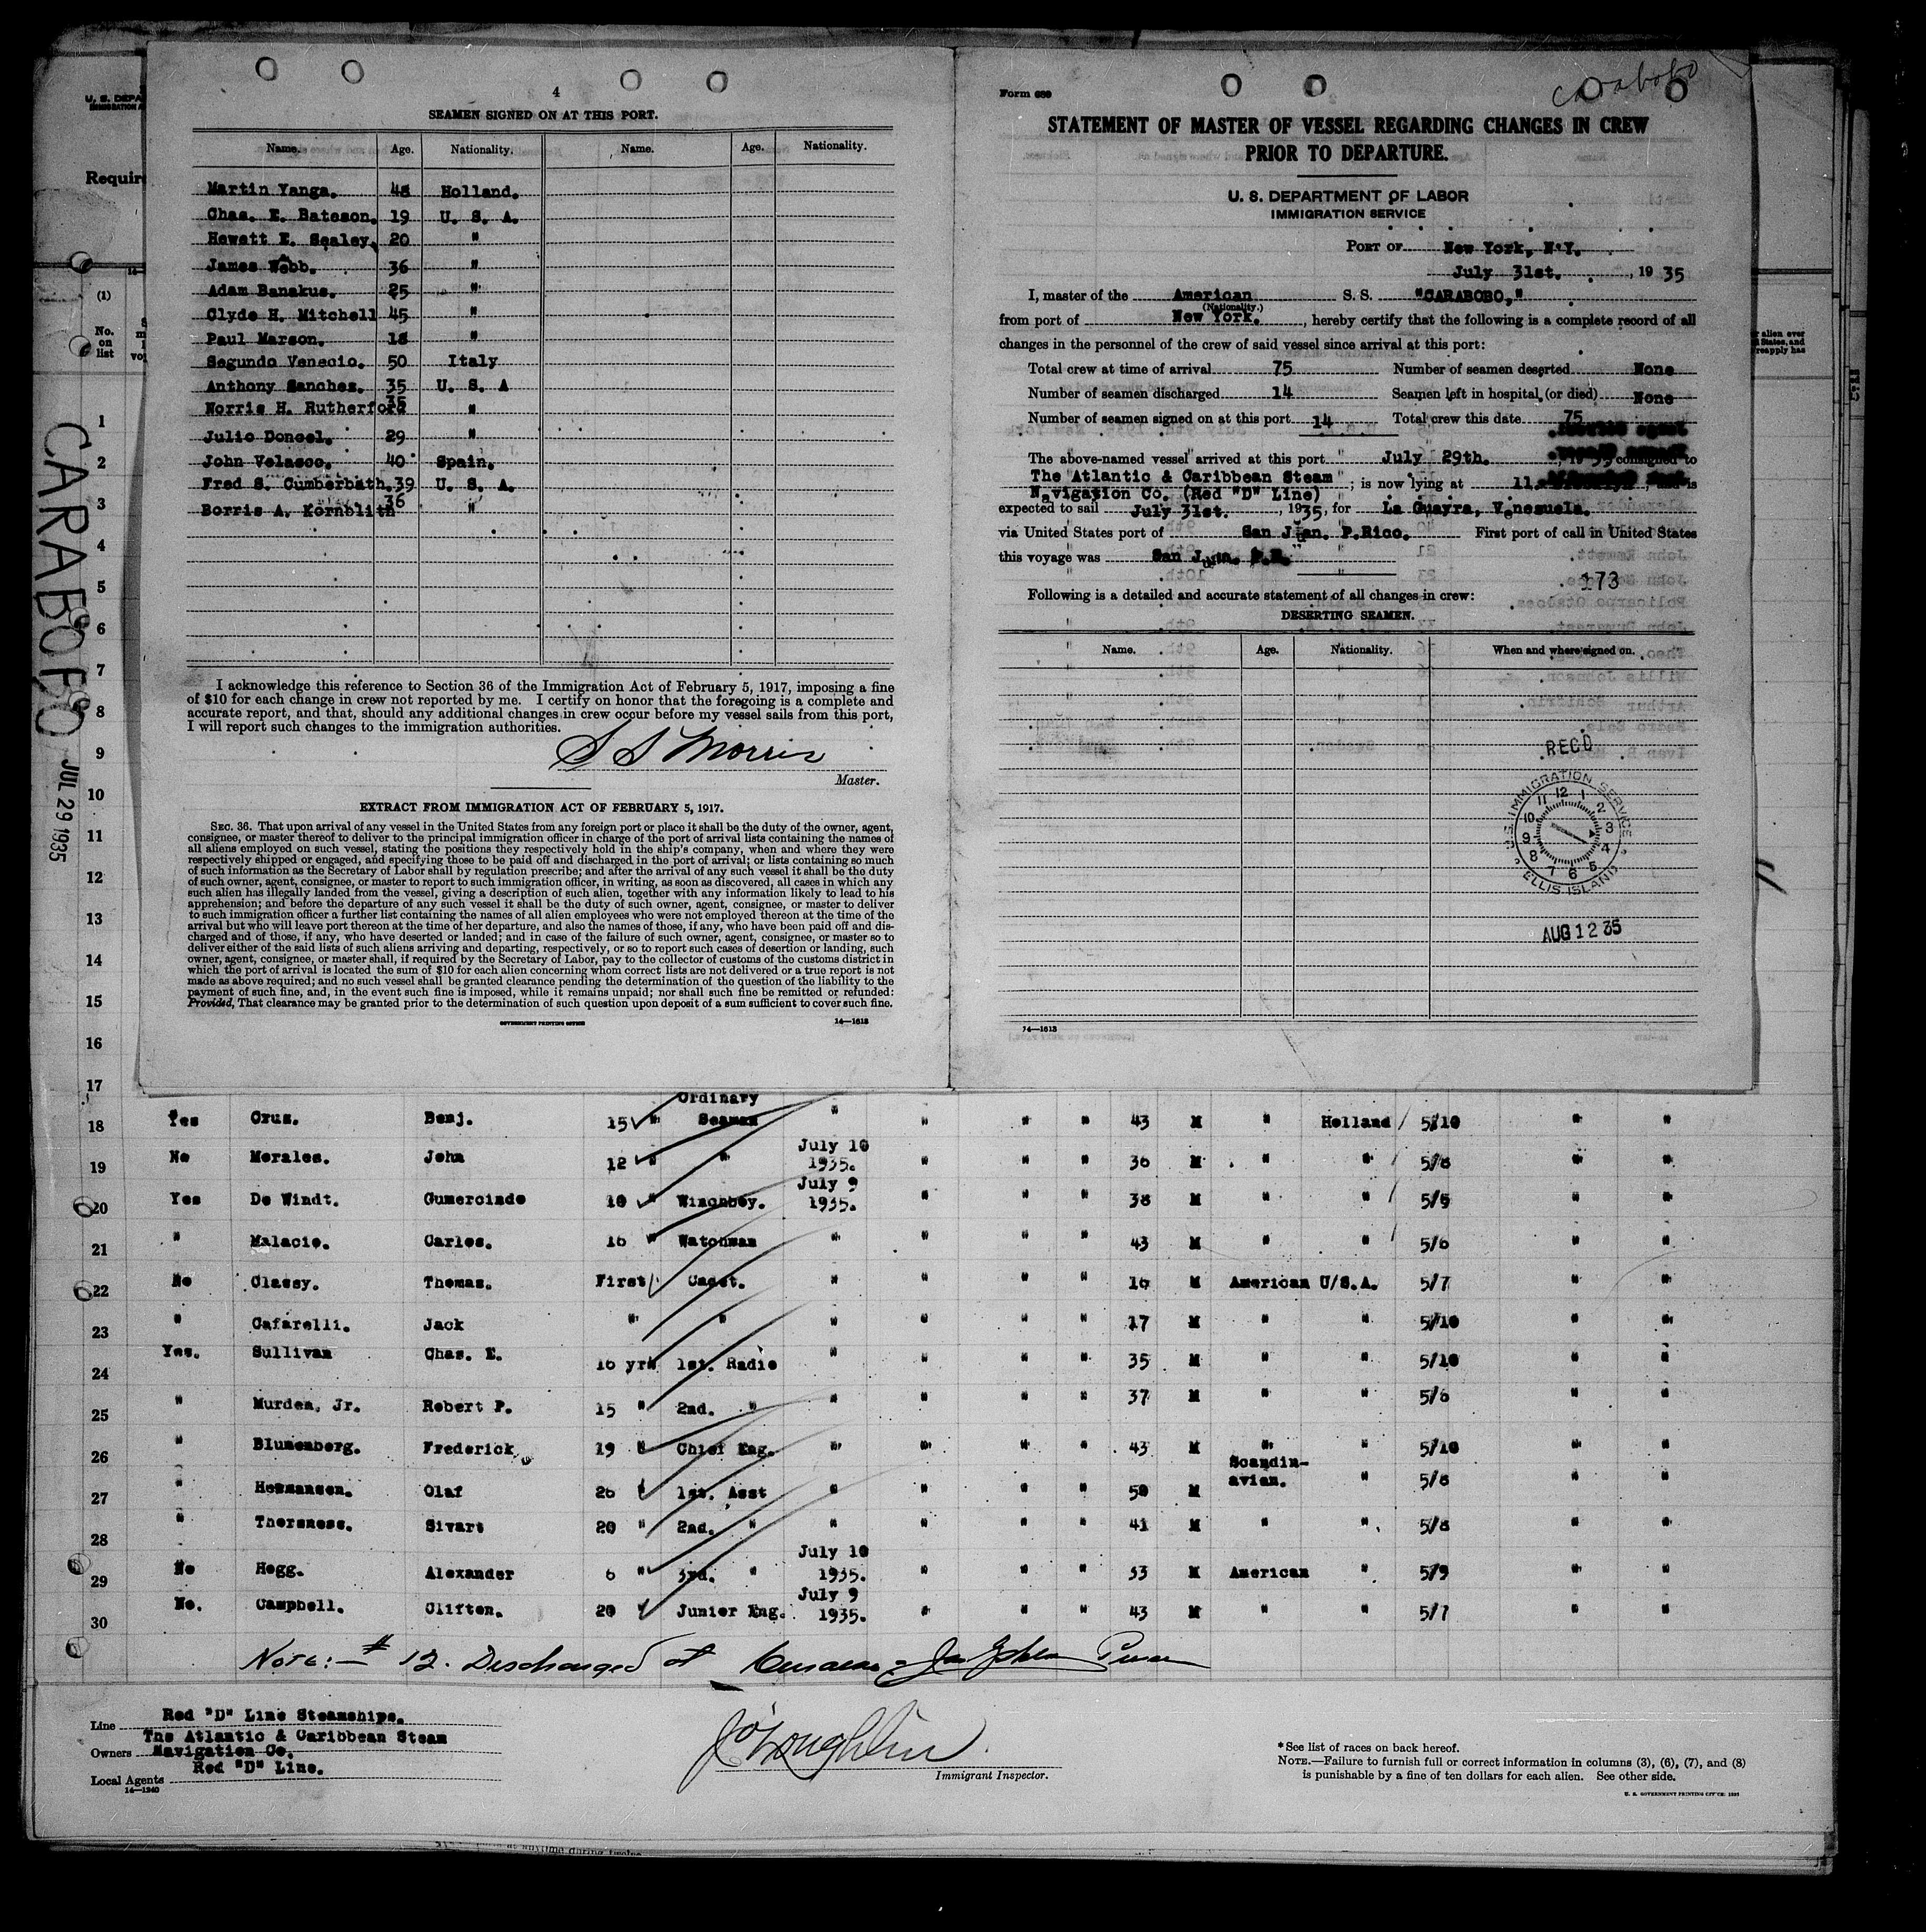 4
SEAMEN SIGNED ON AT THIS PORT.
Name. Age. Nationality. Name. Age. Nationality.
Martin Yanga. 48 Holland.
Chas. E. Bateson. 19 U. S. A.
Hewett E. Sealey. 20 "
James Webb. 36 "
Adam Banakus. 25 "
Clyde H. Mitchell 45 "
Paul Marson. 18 "
Segundo Venecio. 50 Italy
Anthony Sanchez. 35 U. S. A
Norris H. Rutherford 35 "
Julio Doncel. 29 "
John Velasco. 40 Spain.
Fred S. Cumberbath. 39 U. S. A.
Borris A. Kornblith 36 "
I acknowledge this reference to Section 36 of the Immigration Act of February 5, 1917, imposing a fine
of $10 for each change in crew not reported by me. I certify on honor that the foregoing is a complete and
accurate report, and that, should any additional changes in crew occur before my vessel sails from this port,
I will report such changes to the immigration authorities.
S S Morris
Master.
EXTRACT FROM IMMIGRATION ACT OF FEBRUARY 5, 1917.
SEC. 36. That upon arrival of any vessel in the United States from any foreign port or place it shall be the duty of the owner, agent,
consignee, or master thereof to deliver to the principal immigration officer in charge of the port of arrival lists containing the names of
all aliens employed on such vessel, stating the positions they respectively hold in the ship's company, when and where they were
respectively shipped or engaged, and specifying those to be paid off and discharged in the port of arrival; or lists containing so much
of such information as the Secretary of Labor shall by regulation prescribe; and after the arrival of any such vessel it shall be the duty
of such owner, agent, consignee, or master to report to such immigration officer, in writing, as soon as discovered, all cases in which any
such alien has illegally landed from the vessel, giving a description of such alien, together with any information likely to lead to his
apprehension; and before the departure of any such vessel it shall be the duty of such owner, agent, consignee, or master to deliver
to such immigration officer a further list containing the names of all alien employees who were not employed thereon at the time of the
arrival but who will leave port thereon at the time of her departure, and also the names of those, if any, who have been paid off and dis-
charged and of those, if any, who have deserted or landed; and in case of the failure of such owner, agent, consignee, or master so to
deliver either of the said lists of such aliens arriving and departing, respectively, or so to report such cases of desertion or landing, such
owner, agent, consignee, or master shall, if required by the Secretary of Labor, pay to the collector of customs of the customs district in
which the port of arrival is located the sum of $10 for each alien concerning whom correct lists are not delivered or a true report is not
made as above required; and no such vessel shall be granted clearance pending the determination of the question of the liability to the
payment of such fine, and, in the event such fine is imposed, while it remains unpaid; nor shall such fine be remitted or refunded:
Provided, That clearance may be granted prior to the determination of such question upon deposit of a sum sufficient to cover such fine.
GOVERNMENT PRINTING OFFICE 14—1613
Carabobo
Form 689
STATEMENT OF MASTER OF VESSEL REGARDING CHANGES IN CREW
PRIOR TO DEPARTURE.
U. S. DEPARTMENT OF LABOR
IMMIGRATION SERVICE
PORT OF New York, N.Y.
July 31st. , 19 35
I, master of the American S. S. "CARABOBO,"
(Nationality.)
from port of New York. , hereby certify that the following is a complete record of all
changes in the personnel of the crew of said vessel since arrival at this port:
Total crew at time of arrival 75 Number of seamen deserted None
Number of seamen discharged 14 Seamen left in hospital (or died) None
Number of seamen signed on at this port 14 Total crew this date 75
The above-named vessel arrived at this port July 29th. , 1935 consigned to
The Atlantic & Caribbean Steam
Navigation Co. (Red "D" Line) ; is now lying at 11 , and is
expected to sail July 31st. , 1935, for La Guayra, Venezuela.
via United States port of San Juan. P.Rico. First port of call in United States
this voyage was San Juan. P.R.
173
Following is a detailed and accurate statement of all changes in crew:
DESERTING SEAMEN.
Name. Age. Nationality. When and where signed on.
REC'D
U.S. IMMIGRATION SERVICE
12 1 2 3 4 5 6 7 8 9 10 11
ELLIS ISLAND
AUG 12 35
14—1613
U. S. DEPA
IMMIGRATION
Requir
(1)
No.
on
list
CARABOBO
JUL 29 1935
1
2
3
4
5
6
7
8
9
10
11
12
13
14
15
16
17
Ordinary
18 Yes Cruz. Benj. 15 " Seaman " " " " 43 M " Holland 5/10 " "
July 10
19 No Morales. John 12 " " 1935. " " " 36 M " " 5/8 " "
July 9
20 Yes De Windt. Gumercindo 10 " Winchboy. 1935. " " " 38 M " " 5/5 " "
21 " Malacio. Carlos. 16 " Watchman " " " " 43 M " " 5/6 " "
22 No Classy. Thomas. First Cadet. " " " " 16 M American U/S.A. 5/7 " "
23 " Cafarelli. Jack " " " " " " 17 M " " 5/10 " "
24 Yes. Sullivan Chas. E. 16 yrs 1st. Radio " " " " 35 M " " 5/10 " "
25 " Murden, Jr. Robert P. 15 " 2nd. " " " " " 37 M " " 5/6 " "
26 " Blumenberg. Frederick 19 " Chief Eng. " " " " 43 M " " 5/10 " "
Scandin-
27 " Hermansen. Olaf 26 " 1st. Asst " " " " 50 M avian. " 5/8 " "
28 " Thorsness. Sivart 20 " 2nd. " " " " " 41 M " " 5/8 " "
July 10
29 No Hogg. Alexander 6 " 3rd. " 1935. " " " 33 M American " 5/9 " "
July 9
30 No. Campbell. Clifton. 20 " Junior Eng. 1935. " " " 43 M " " 5/7 " "
Note:— # 12. Discharged at Curacao
Line Red "D" Line Steamships.
The Atlantic & Caribbean Steam
Owners Navigation Co.
Red "D" Line.
Local Agents
14—1240
J O'Loughlin
Immigrant Inspector.
*See list of races on back hereof.
NOTE.—Failure to furnish full or correct information in columns (3), (6), (7), and (8)
is punishable by a fine of ten dollars for each alien. See other side.
U. S. GOVERNMENT PRINTING OFFICE: 1931